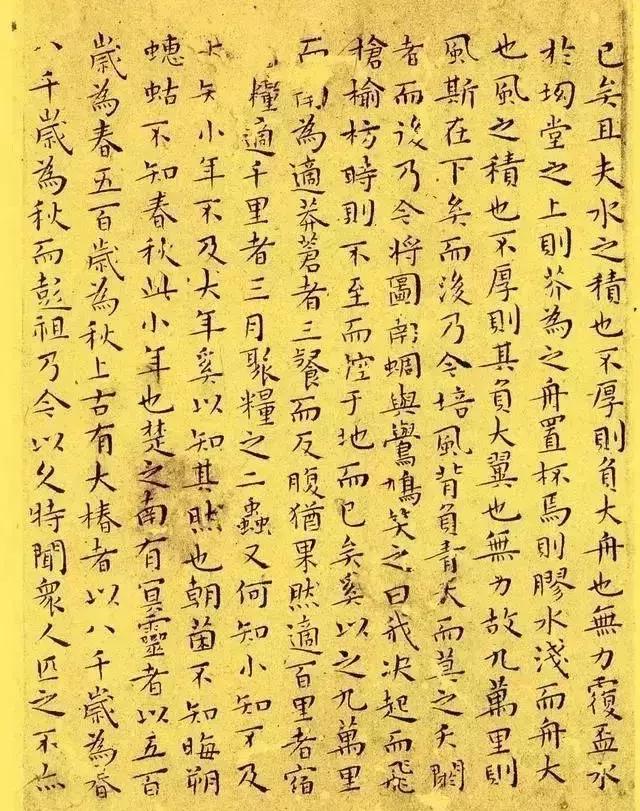 已矣且夫水之積也不厚則負大舟也無力覆盃水
於坳堂之上則芥為之舟置杯焉則膠水淺而舟大
也風之積也不厚則其負大翼也無力故九萬里則
風斯在下矣而後乃今培風背負青天而莫之夭閼
者而後乃今將圖南蜩與鷽鳩笑之曰我決起而飛
槍榆枋時則不至而控于地而已矣奚以之九萬里
而為適莽蒼者三飡而反腹猶果然適百里者宿
糧適千里者三月聚糧之二蟲又何知小知不及
大年小年不及大年奚以知其然也朝菌不知晦朔
蟪蛄不知春秋此小年也楚之南有冥靈者以五百
歲為春五百歲為秋上古有大椿者以八千歲為春
八千歲為秋而彭祖乃今以久特聞衆人匹之不亦